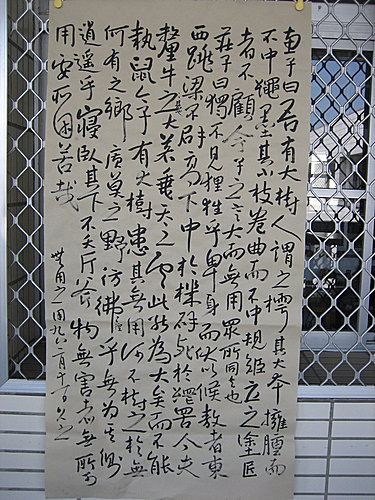 惠子曰吾有大樹人謂之樗其大本擁腫而
不中繩墨其小枝卷曲而不中規矩立之塗匠
者不顧今子之言大而無用眾所同去也
莊子曰獨不見狸狌乎卑身而伏以候敖者東
西跳梁不辟高下中於機辟死於罟今夫
牛其大若垂天之雲此能為大矣而不能
執鼠今子有大樹患其無用何不樹之於無
何有之鄉廣莫之野彷徨乎無為其側
逍遙乎寢臥其下不夭斤斧物無害者無所可
用安所困苦哉
無用之用九八二月十